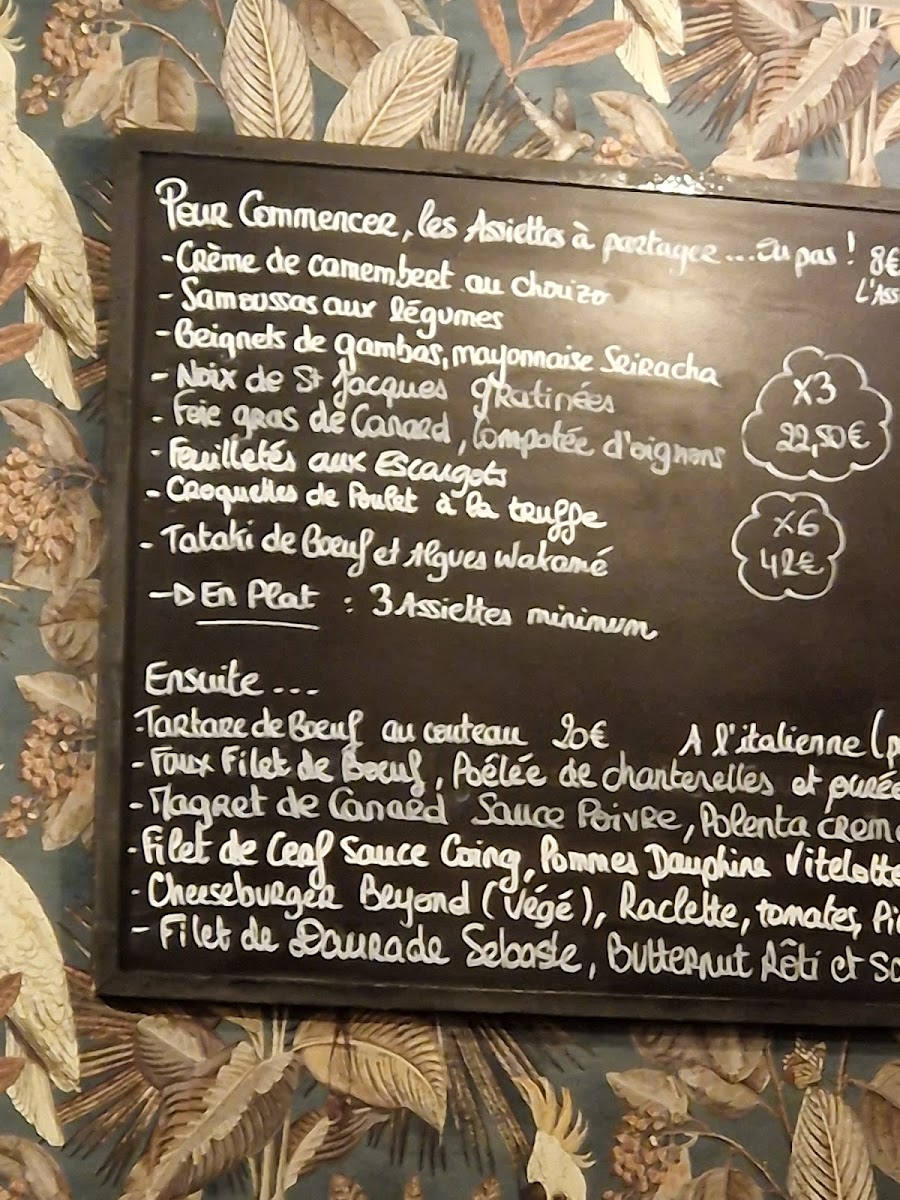 Pour Commencer, les Assiettes à partager... ou pas ! 8€
L'Ass
- Crème de camembert au chorizo
- Samoussas aux légumes
- Beignets de gambas, mayonnaise Sriracha
- Noix de St Jacques gratinées
- Foie gras de Canard, compotée d'oignons
- Feuilletés aux Escargots
- Croquettes de Poulet à la truffe
- Tataki de Boeuf et Algues wakamé
→ En Plat : 3 Assiettes minimum
X3
22,50€
X6
42€
Ensuite...
- Tartare de Boeuf au couteau 20€ A l'italienne (p
- Faux Filet de Boeuf, Poêlée de chanterelles et purée
- Magret de Canard Sauce Poivre, Polenta crém
- Filet de Cerf Sauce Coing, Pommes Dauphine Vitelotte
- Cheeseburger Beyond (Végé), Raclette, tomates, Pi
- Filet de Daurade Sebaste, Butternut Rôti et Sa